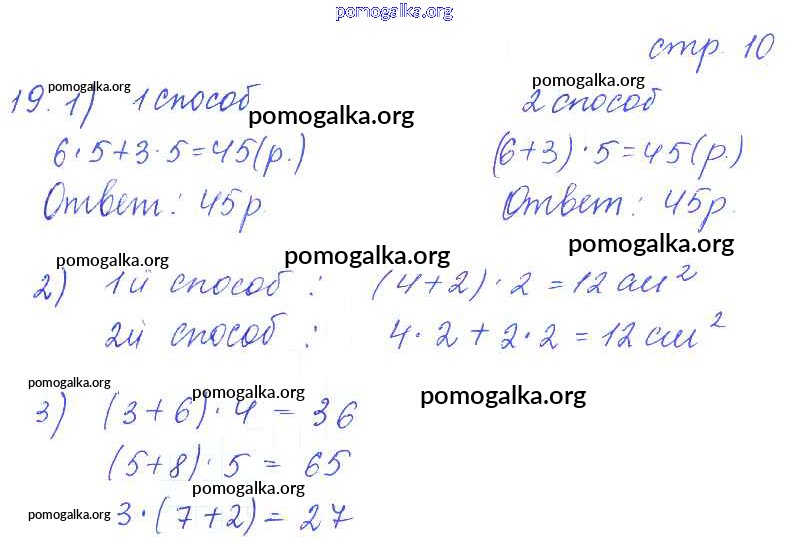 pomogalka.org
стр. 10
pomogalka.org
pomogalka.org
19. 1) 1 способ
2 способ
pomogalka.org
6 · 5 + 3 · 5 = 45 (р.)
(6 + 3) · 5 = 45 (р.)
Ответ: 45 р.
Ответ: 45 р.
pomogalka.org
pomogalka.org
pomogalka.org
2) 1й способ : (4 + 2) · 2 = 12 см²
2й способ : 4 · 2 + 2 · 2 = 12 см²
pomogalka.org
pomogalka.org
pomogalka.org
3) (3 + 6) · 4 = 36
(5 + 8) · 5 = 65
pomogalka.org
pomogalka.org
3 · (7 + 2) = 27